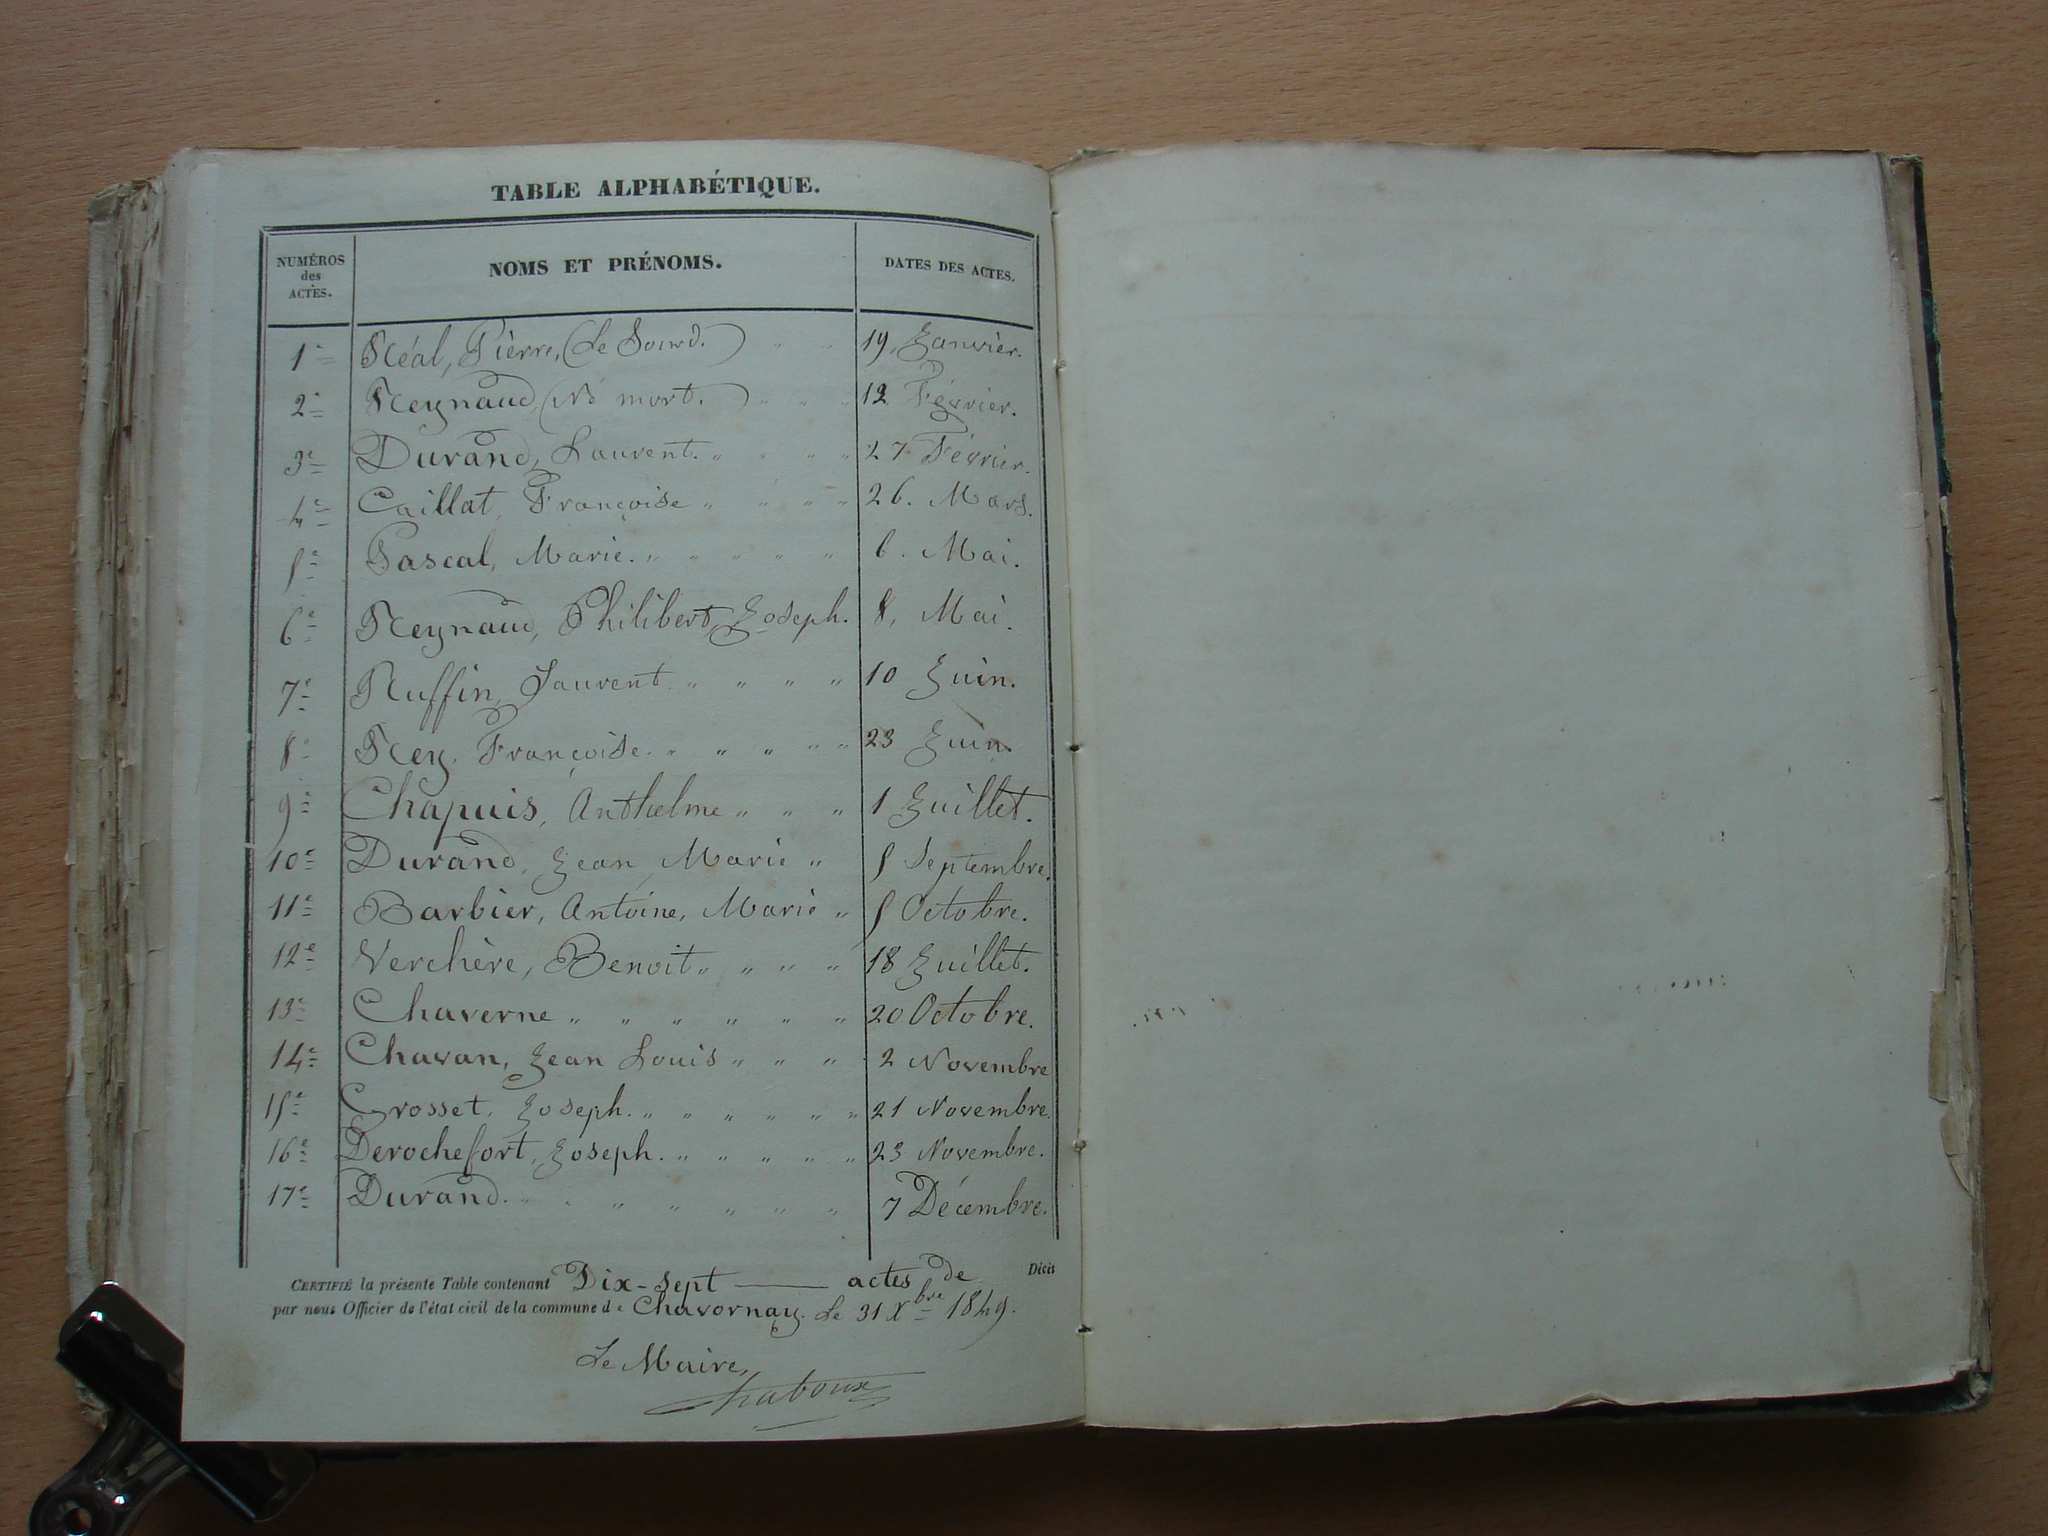 TABLE ALPHABÉTIQUE.
NUMÉROS des ACTES. NOMS ET PRÉNOMS. DATES DES ACTES.
1e Réal, Pierre, (Le Sourd.) " " 19, Janvier.
2e Reynaud, (Né mort.) " " " 12 Février.
3e Durand, Laurent. " " " " 27 Février.
4e Caillat, Françoise " " " " 26. Mars.
5e Pascal, Marie. " " " " " 6. Mai.
6e Reynaud, Philibert, Joseph. 8, Mai.
7e Ruffin, Laurent " " " " 10 Juin.
8e Rey. Françoise. " " " " " 23 Juin.
9e Chapuis, Anthelme " " " 1 Juillet.
10e Durand, Jean, Marie " 5 Septembre.
11e Barbier, Antoine, Marie " 5 Octobre.
12e Verchère, Benoit " " " " 18 Juillet.
13e Chaverne " " " " " " 20 Octobre.
14e Chavan, Jean Louis " " " 2 Novembre
15e Grosset, Joseph. " " " " " 21 Novembre.
16e Derochefort, Joseph. " " " " " 23 Novembre.
17e Durand. " " " " " " " 7 Décembre.
CERTIFIÉ la présente Table contenant Dix-Sept actes de Décès
par nous Officier de l'état civil de la commune de Chavornay. Le 31 Xbre 1849.
Le Maire,
Chaboux